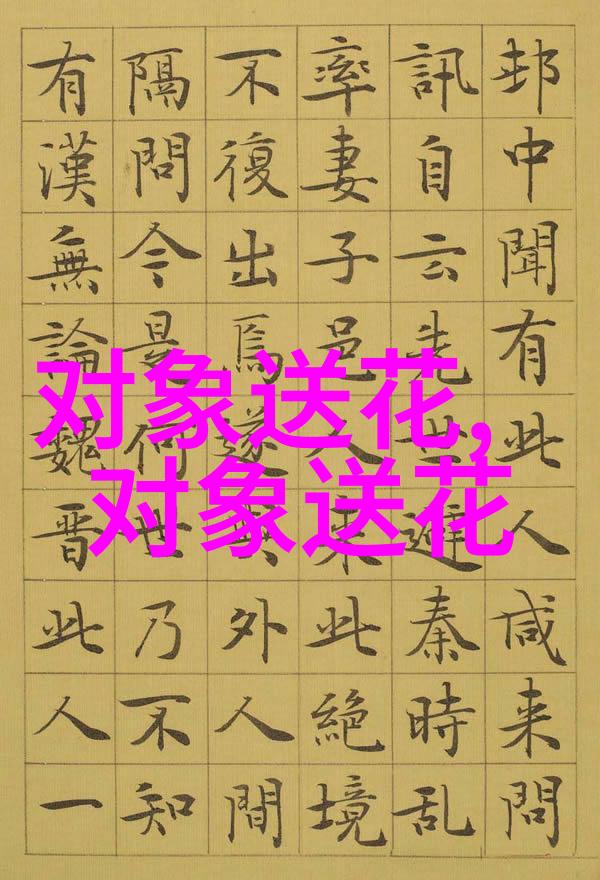 邨中聞有此人咸来問
訊自云先世避秦時乱
率妻子邑人来此絶境
不復出焉遂與外人間
隔問今是何世乃不知
有漢無論魏晋此人一
对象送花,
对象送花